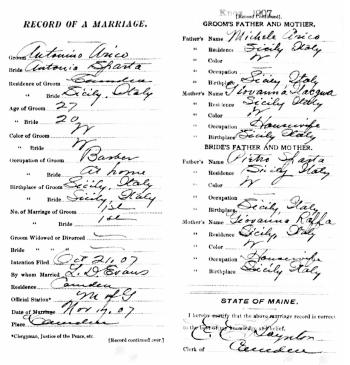 RECORD OF A MARRIAGE.
Groom Antonino Arico
Bride Antonia Basta
Residence of Groom Camden
" Bride Sicily, Italy
Age of Groom 27
" Bride 20
Color of Groom W
" Bride W
Occupation of Groom Barber
" Bride At home
Birthplace of Groom Sicily, Italy
" Bride Sicily, Italy
No. of Marriage of Groom 1st
" Bride 1st
Groom Widowed or Divorced
Bride " "
Intention Filed Oct 21, 07
By whom Married L. D. Evans
Residence Camden
Official Station* M of G
Date of Marriage Nov 19, 07
Place Camden
*Clergyman, Justice of the Peace, etc. [Record continued over.]
1907
[Record Continued].
GROOM'S FATHER AND MOTHER.
Father's Name Michele Arico
" Residence Sicily Italy
" Color W
" Occupation
" Birthplace Sicily Italy
Mother's Name Giovanna
" Residence Sicily, Italy
" Color W
" Occupation Housewife
" Birthplace Sicily Italy
BRIDE'S FATHER AND MOTHER.
Father's Name Pietro Basta
" Residence Sicily Italy
" Color W
" Occupation
" Birthplace Sicily, Italy
Mother's Name Giovanna
" Residence Sicily, Italy
" Color W
" Occupation Housewife
" Birthplace Sicily Italy
STATE OF MAINE.
I hereby certify that the above marriage record is correct
to the best of my knowledge and belief.
Clerk of Camden